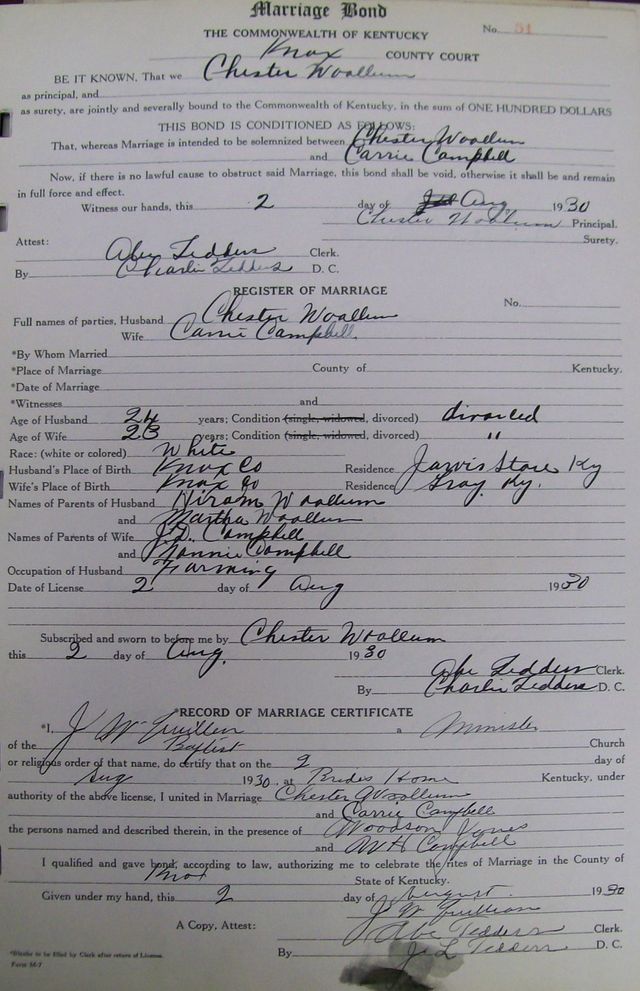 Marriage Bond
No. 51
THE COMMONWEALTH OF KENTUCKY
Knox COUNTY COURT
BE IT KNOWN, That we Chester Woollum
as principal, and
as surety, are jointly and severally bound to the Commonwealth of Kentucky, in the sum of ONE HUNDRED DOLLARS
THIS BOND IS CONDITIONED AS FOLLOWS:
That, whereas Marriage is intended to be solemnized between Chester Woollum
and Carrie Campbell
Now, if there is no lawful cause to obstruct said Marriage, this bond shall be void, otherwise it shall be and remain
in full force and effect.
Witness our hands, this 2 day of Aug 1930
Chester Woollum Principal.
Surety.
Attest:
Abe Tedders Clerk.
By Charlie Tedders D. C.
REGISTER OF MARRIAGE
No.
Full names of parties, Husband Chester Woollum
Wife Carrie Campbell.
*By Whom Married
*Place of Marriage County of Kentucky.
*Date of Marriage
*Witnesses and
Age of Husband 24 years; Condition (single, widowed, divorced) divorced
Age of Wife 23 years; Condition (single, widowed, divorced) "
Race: (white or colored) White
Husband's Place of Birth Knox Co Residence Jarvis Store Ky
Wife's Place of Birth Knox Co Residence Gray, Ky.
Names of Parents of Husband Hiram Woollum
and Martha Woollum
Names of Parents of Wife J.D. Campbell
and Nannie Campbell
Occupation of Husband Farming
Date of License 2 day of Aug 1930
Subscribed and sworn to before me by Chester Woollum
this 2 day of Aug. 1930
Abe Tedders Clerk.
By Charlie Tedders D. C.
*RECORD OF MARRIAGE CERTIFICATE
*I, J W a Minister
of the Baptist Church
or religious order of that name, do certify that on the 2 day of
Aug 1930, at Brides Home Kentucky, under
authority of the above license, I united in Marriage Chester Woollum
and Carrie Campbell
the persons named and described therein, in the presence of Woodson Jones
and W H Campbell
I qualified and gave bond, according to law, authorizing me to celebrate the rites of Marriage in the County of
Knox State of Kentucky.
Given under my hand, this 2 day of August. 1930
J. W.
A Copy, Attest: Abe Tedders Clerk.
By J. L Tedders D. C.
*Blanks to be filled by Clerk after return of License.
Form M-7